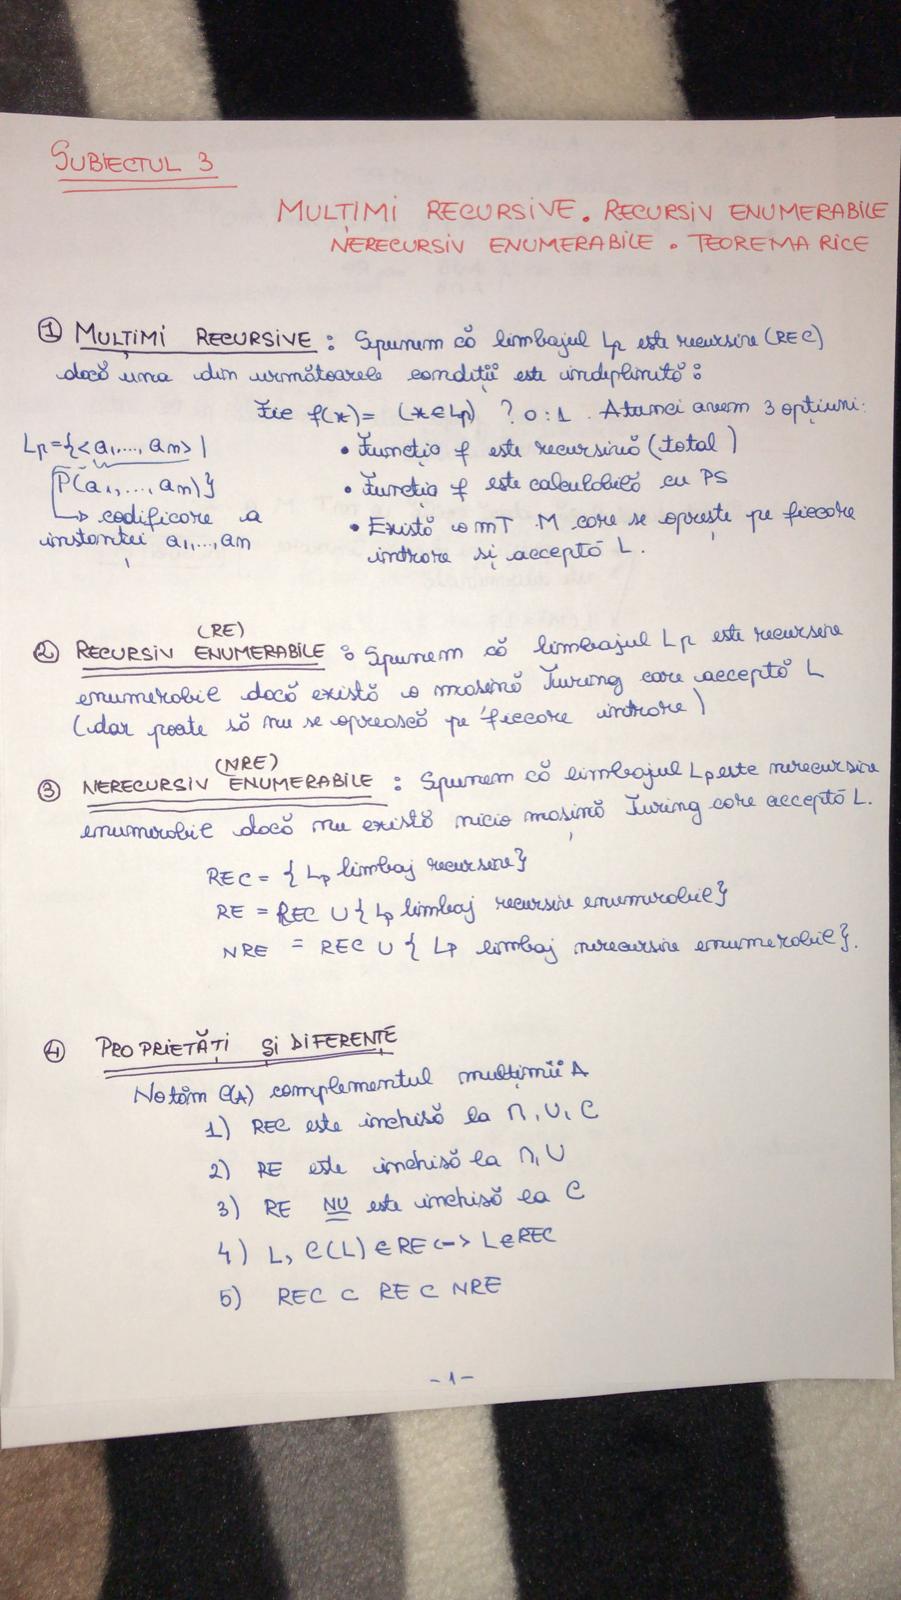 SUBIECTUL 3
MULȚIMI RECURSIVE. RECURSIV ENUMERABILE
NERECURSIV ENUMERABILE. TEOREMA RICE
① MULȚIMI RECURSIVE: Spunem că limbajul Lp este recursiv (REC)
dacă una din următoarele condiții este îndeplinită:
Fie f(x)= (x∈Lp) ? 0:1. Atunci avem 3 opțiuni:
Lp={<a1,..., an> |
P(a1,..., an)}
↳ codificare a
instanței a1,..,an
• Funcția f este recursivă (total)
• Funcția f este calculabilă cu PS
• Există o mT M care se oprește pe fiecare
intrare și acceptă L.
(RE)
② RECURSIV ENUMERABILE: Spunem că limbajul Lp este recursiv
enumerabil dacă există o mașină Turing care acceptă L
(dar poate să nu se oprească pe fiecare intrare)
(NRE)
③ NERECURSIV ENUMERABILE: Spunem că limbajul Lp este nerecursiv
enumerabil dacă nu există nicio mașină Turing care acceptă L.
REC = { Lp limbaj recursiv}
RE = REC U { Lp limbaj recursiv enumerabil}
NRE = REC U { Lp limbaj nerecursiv enumerabil}.
④ PROPRIETĂȚI ȘI DIFERENȚE
Notăm C(A) complementul mulțimii A
1) REC este închisă la ∩, U, C
2) RE este închisă la ∩, U
3) RE NU este închisă la C
4) L, C(L) ∈ RE <-> L∈REC
5) REC ⊂ RE ⊂ NRE
-1-